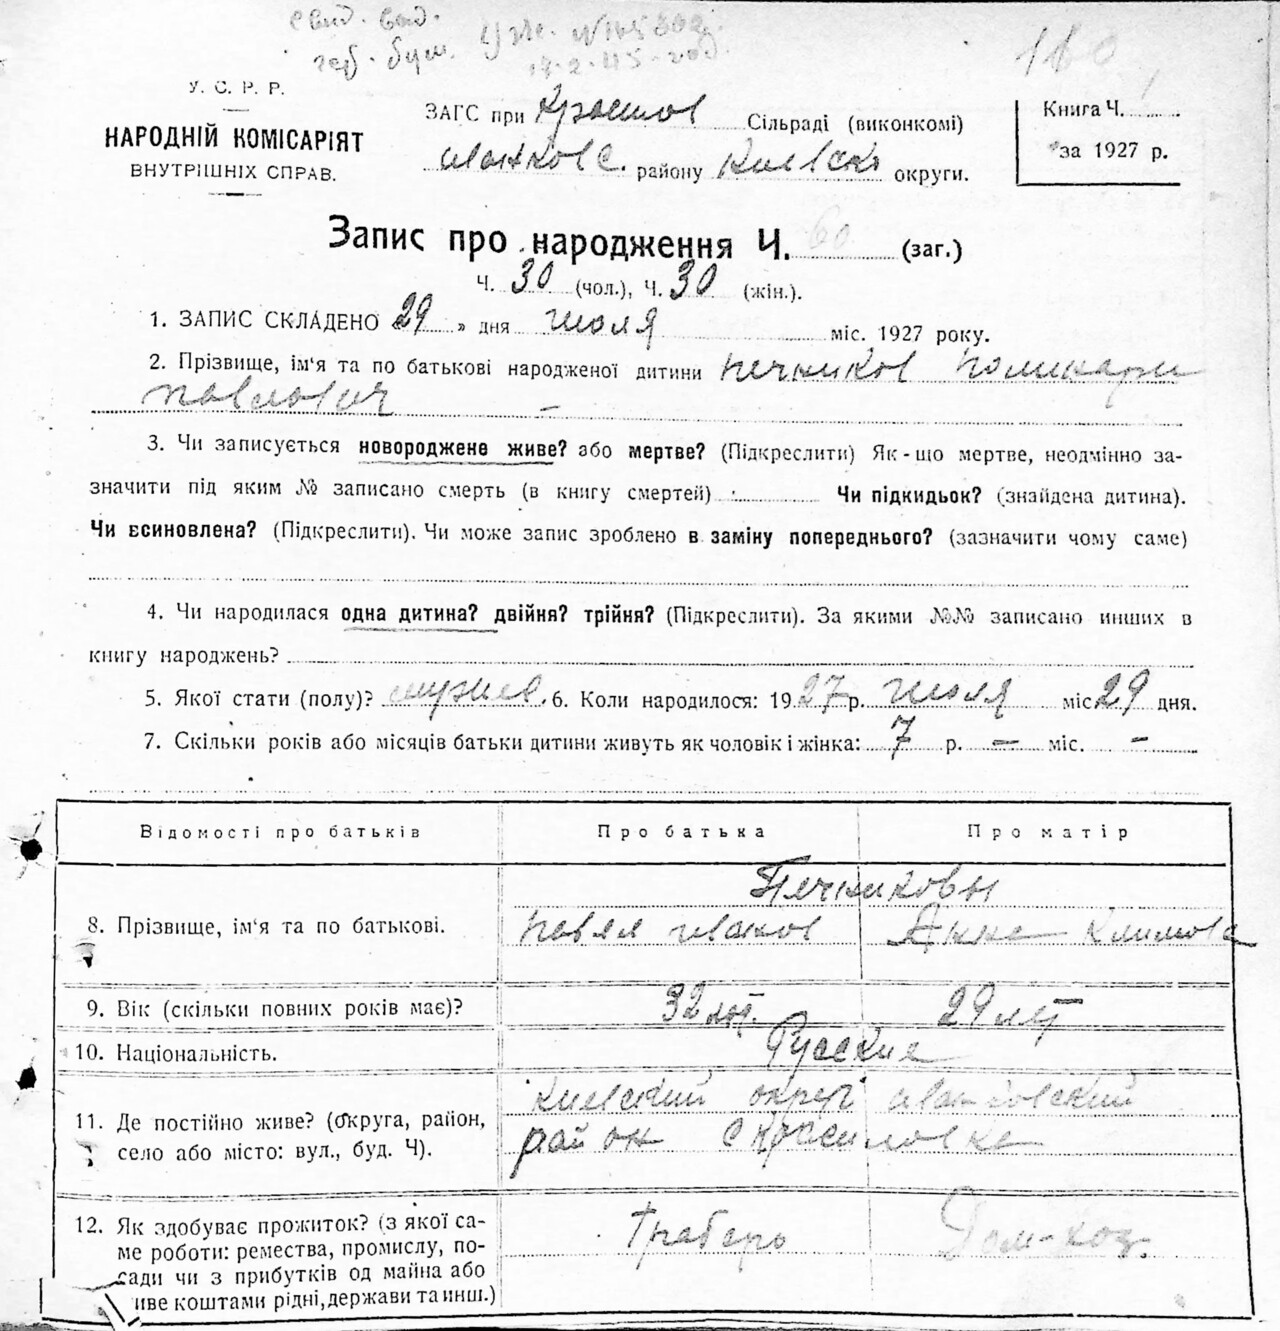 свид. выд.
герб. бум. Уже. №
17-2-45-год.
160
У. С. Р. Р.
НАРОДНІЙ КОМІСАРІЯТ
ВНУТРІШНІХ СПРАВ.
ЗАГС при Сільраді (виконкомі)
району Киевск округи.
Книга Ч.
за 1927 р.
Запис про народження Ч. 60 (заг.)
Ч. 30 (чол.), Ч. 30 (жін.).
1. ЗАПИС СКЛАДЕНО 29 » дня июля міс. 1927 року.
2. Прізвище, ім'я та по батькові народженої дитини Печников
Павлович –
3. Чи записується новороджене живе? або мертве? (Підкреслити) Як-що мертве, неодмінно за-
значити під яким № записано смерть (в книгу смертей) Чи підкидьок? (знайдена дитина).
Чи всиновлена? (Підкреслити). Чи може запис зроблено в заміну попереднього? (зазначити чому саме)
4. Чи народилася одна дитина? двійня? трійня? (Підкреслити). За якими №№ записано инших в
книгу народжень?
5. Якої стати (полу)? мужск. 6. Коли народилося: 1927 р. июля міс 29 дня.
7. Скільки років або місяців батьки дитини живуть як чоловік і жінка: 7 р. — міс. –
Відомості про батьків Про батька Про матір
Печниковы
8. Прізвище, ім'я та по батькові. Павел Иванов Анна Климова
9. Вік (скільки повних років має)? 32 лет. 29 лет
10. Національність. Русские
Киевский округ Иванковский
11. Де постійно живе? (округа, район,
район с
село або місто: вул., буд. Ч).
12. Як здобуває прожиток? (з якої са-
ме роботи: ремества, промислу, по-
Грабарь Дом-хоз.
сади чи з прибутків од майна або
иве коштами рідні, держави та инш.)